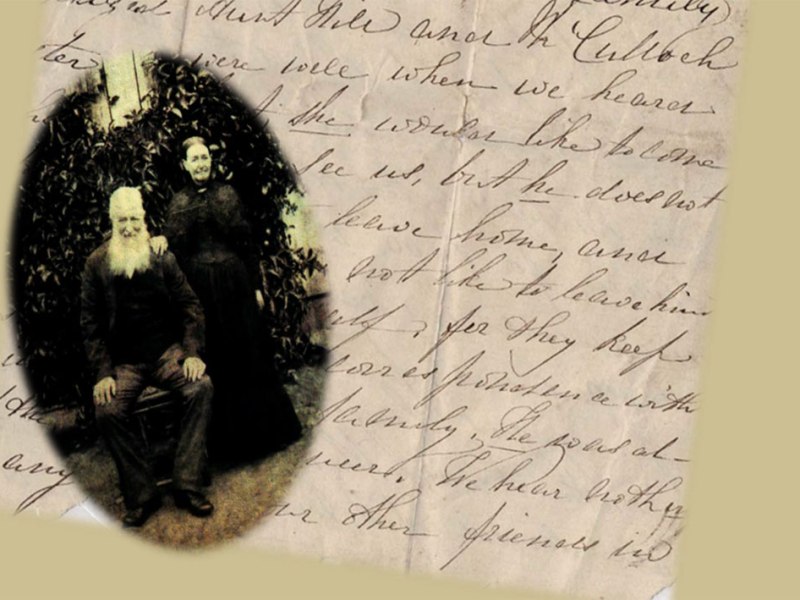 family)
Aunt Nile and McCulloch
were well when we heard
she would like to come
see us, but he does not
leave home, and
not like to leave him
for they keep
correspondence with
the family, He was al-
any We hear nothing
our other friends in